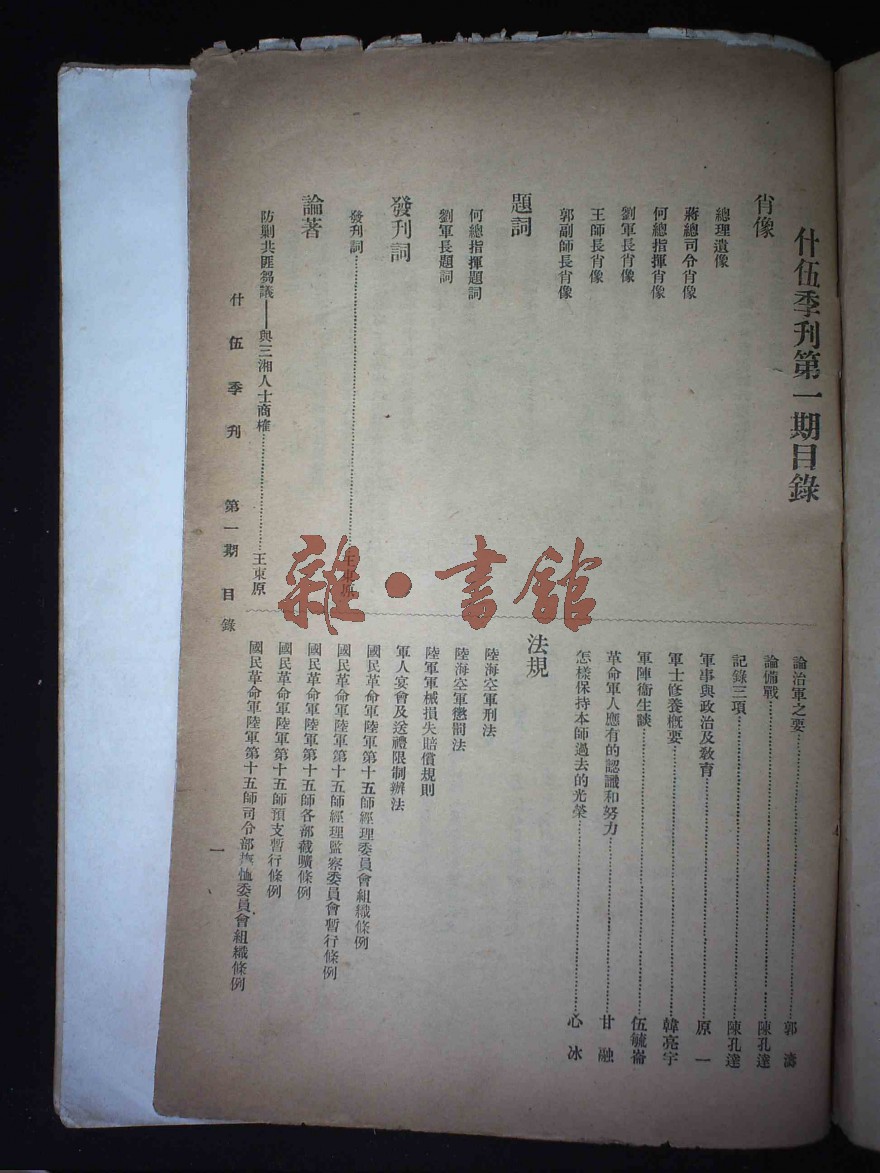 什伍季刊第一期目錄
肖像
總理遺像
蔣總司令肖像
何總指揮肖像
劉軍長肖像
王師長肖像
郭副師長肖像
題詞
何總指揮題詞
劉軍長題詞
發刊詞
發刊詞……王東原
論著
防剿共匪芻議——與三湘人士商榷……王東原
論治軍之要……郭濤
論備戰……陳孔達
記錄三項……陳孔達
軍事與政治及教育……原一
軍士修養概要……韓亮宇
軍陣衞生談……伍毓崙
革命軍人應有的認識和努力……甘融
怎樣保持本師過去的光榮……心冰
法規
陸海空軍刑法
陸海空軍懲罰法
陸軍軍械損失賠償規則
軍人宴會及送禮限制辦法
國民革命軍陸軍第十五師經理委員會組織條例
國民革命軍陸軍第十五師經理監察委員會暫行條例
國民革命軍陸軍第十五師各部截曠條例
國民革命軍陸軍第十五師預支暫行條例
國民革命軍陸軍第十五師司令部撫恤委員會組織條例
什伍季刊 第一期 目錄
一
雜·書館